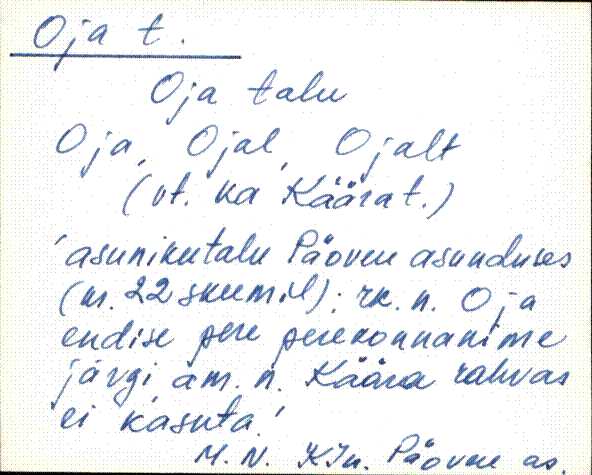 Oja t.
Oja talu
Oja, Ojal, Ojalt
(vt. ka Käära t.)
'asunikutalu Päovere asunduses
(nr. 22 skeemil); rk. n. Oja
endise pere perekonnanime
järgi, am. n. Käära rahvas
ei kasuta.'
M. N. KJn. Päovere as.